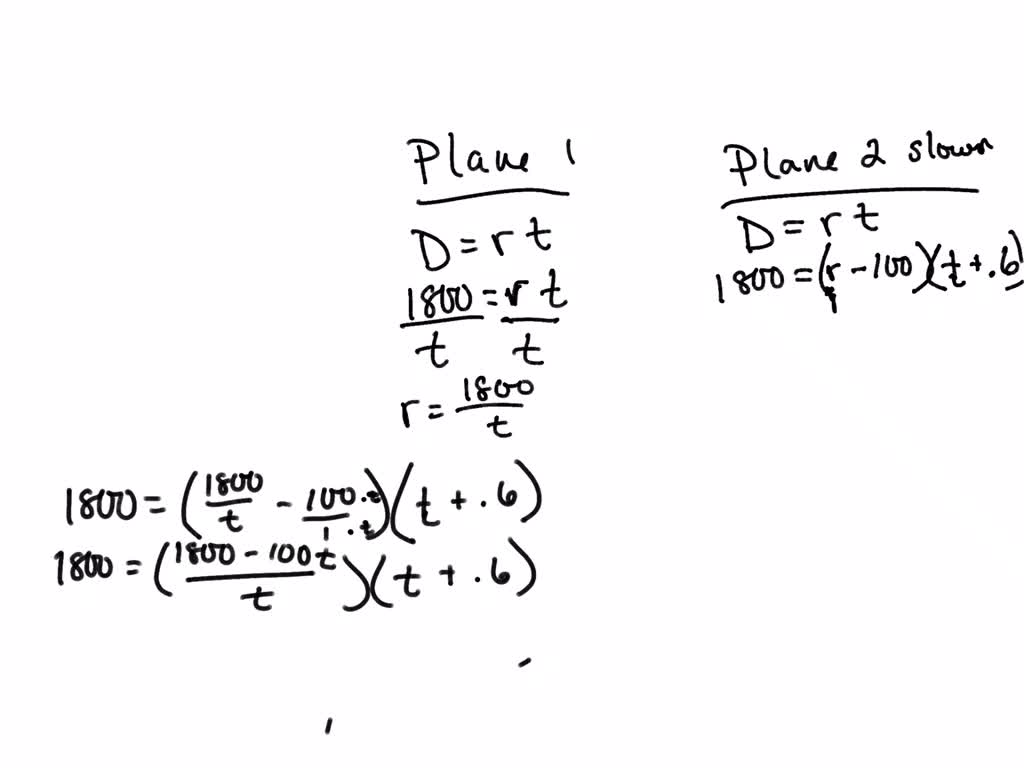 Plane 1
D = r t
1800 = r t
t t
r = 1800/t
Plane 2 slower
D = r t
1800 = (r - 100)(t + .6)
1800 = (1800/t - 100·t/1·t)(t + .6)
1800 = (1800 - 100t/t)(t + .6)